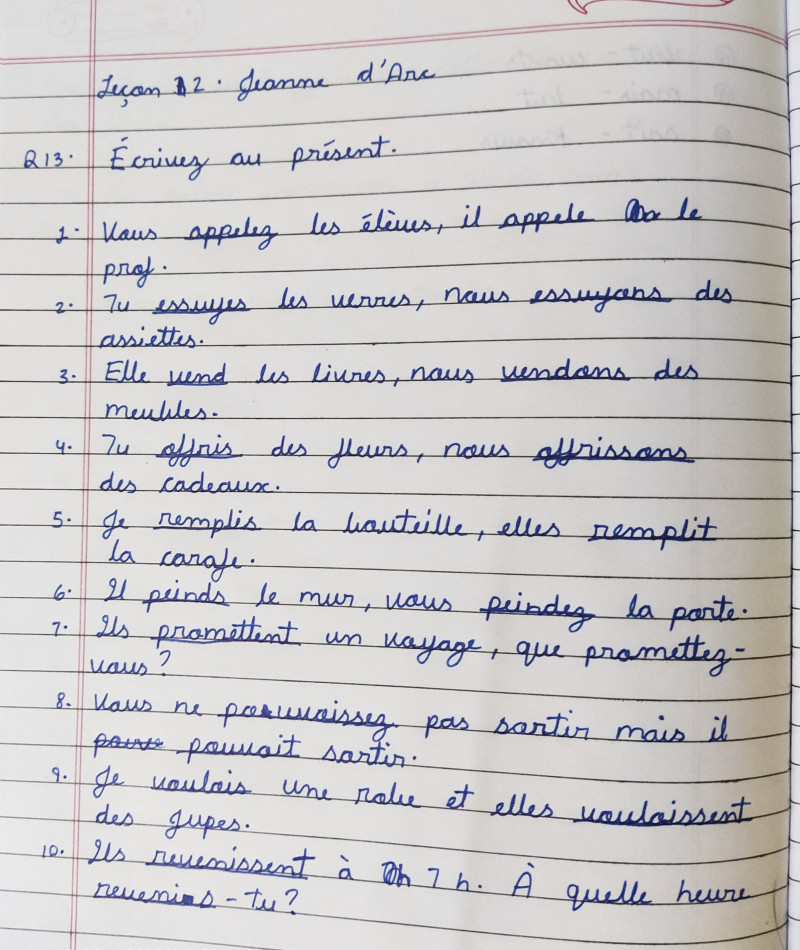 Leçon 12. Jeanne d'Arc
Q13. Écrivez au présent.
1. Vous appelez les élèves, il appele le
prof.
2. Tu essuyes les verres, nous essuyons des
assiettes.
3. Elle vend les livres, nous vendons des
meubles.
4. Tu offris des fleurs, nous offrissons
des cadeaux.
5. Je remplis la bouteille, elles remplit
la carafe.
6. Il peinds le mur, vous peindez la porte.
7. Ils promettent un voyage, que promettez-
vous?
8. Vous ne pouvoissez pas sortir mais il
pouvoit sortir.
9. Je voulois une robe et elles vouloissent
des jupes.
10. Ils revenissent à 7 h. À quelle heure
revenis-tu?